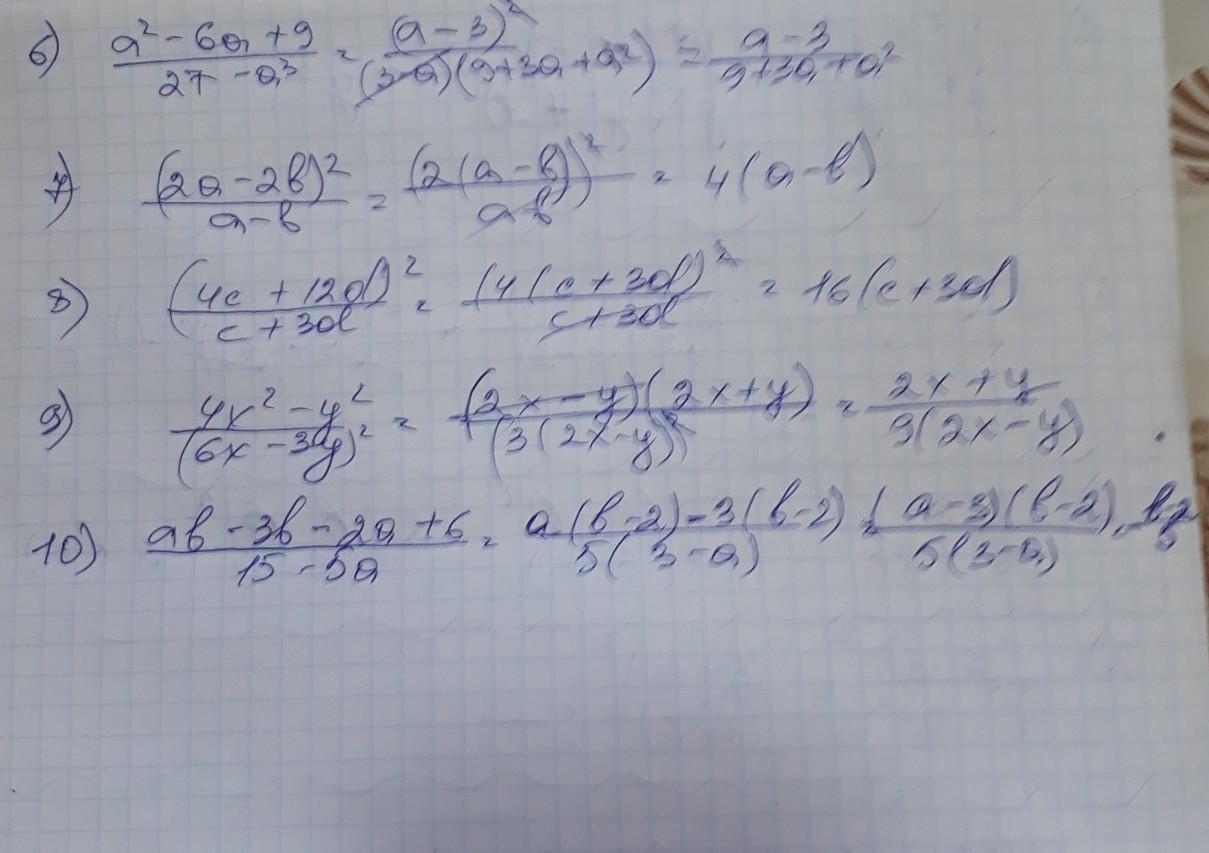 6) (a² - 6a + 9)/(27 - a³) = (a - 3)²/((3-a)(9+3a+a²)) = (a - 3)/(9+3a+a²)
7) (2a - 2b)²/(a - b) = (2(a - b))²/(a b) = 4(a - b)
8) (4c + 12d)²/(c + 3d) = (4(c + 3d)²/(c + 3d) = 16(c + 3d)
9) (4x² - y²)/(6x - 3y)² = (2x - y)(2x + y)/(3(2x - y)² = (2x + y)/9(2x - y)
10) (ab - 3b - 2a + 6)/(15 - 5a) = (a(b - 2) - 3(b - 2))/5(3 - a) = (a - 3)(b - 2)/5(3 - a)